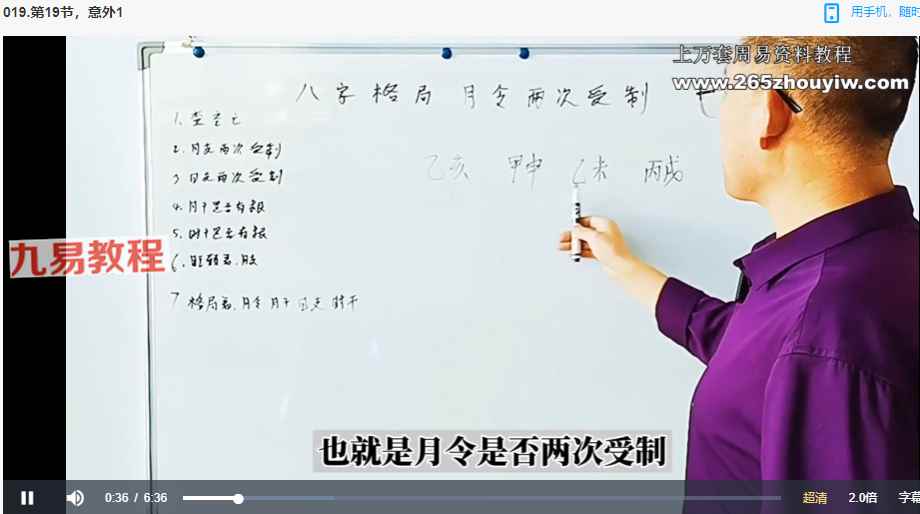 019.第19节，意外1
用手机，随时
上万套周易资料教程
www.265zhouyiw.com
八字格局 月令两次受制
1.查空亡
2.月支两次受制
3.日支两次受制
4.月干是否有根
5.时干是否有根
6.
7.格局名,月令月干日支时干
乙亥 甲申 乙未 丙戌
九易教程
也就是月令是否两次受制
0:36 / 6:36
超清
2.0倍
字幕